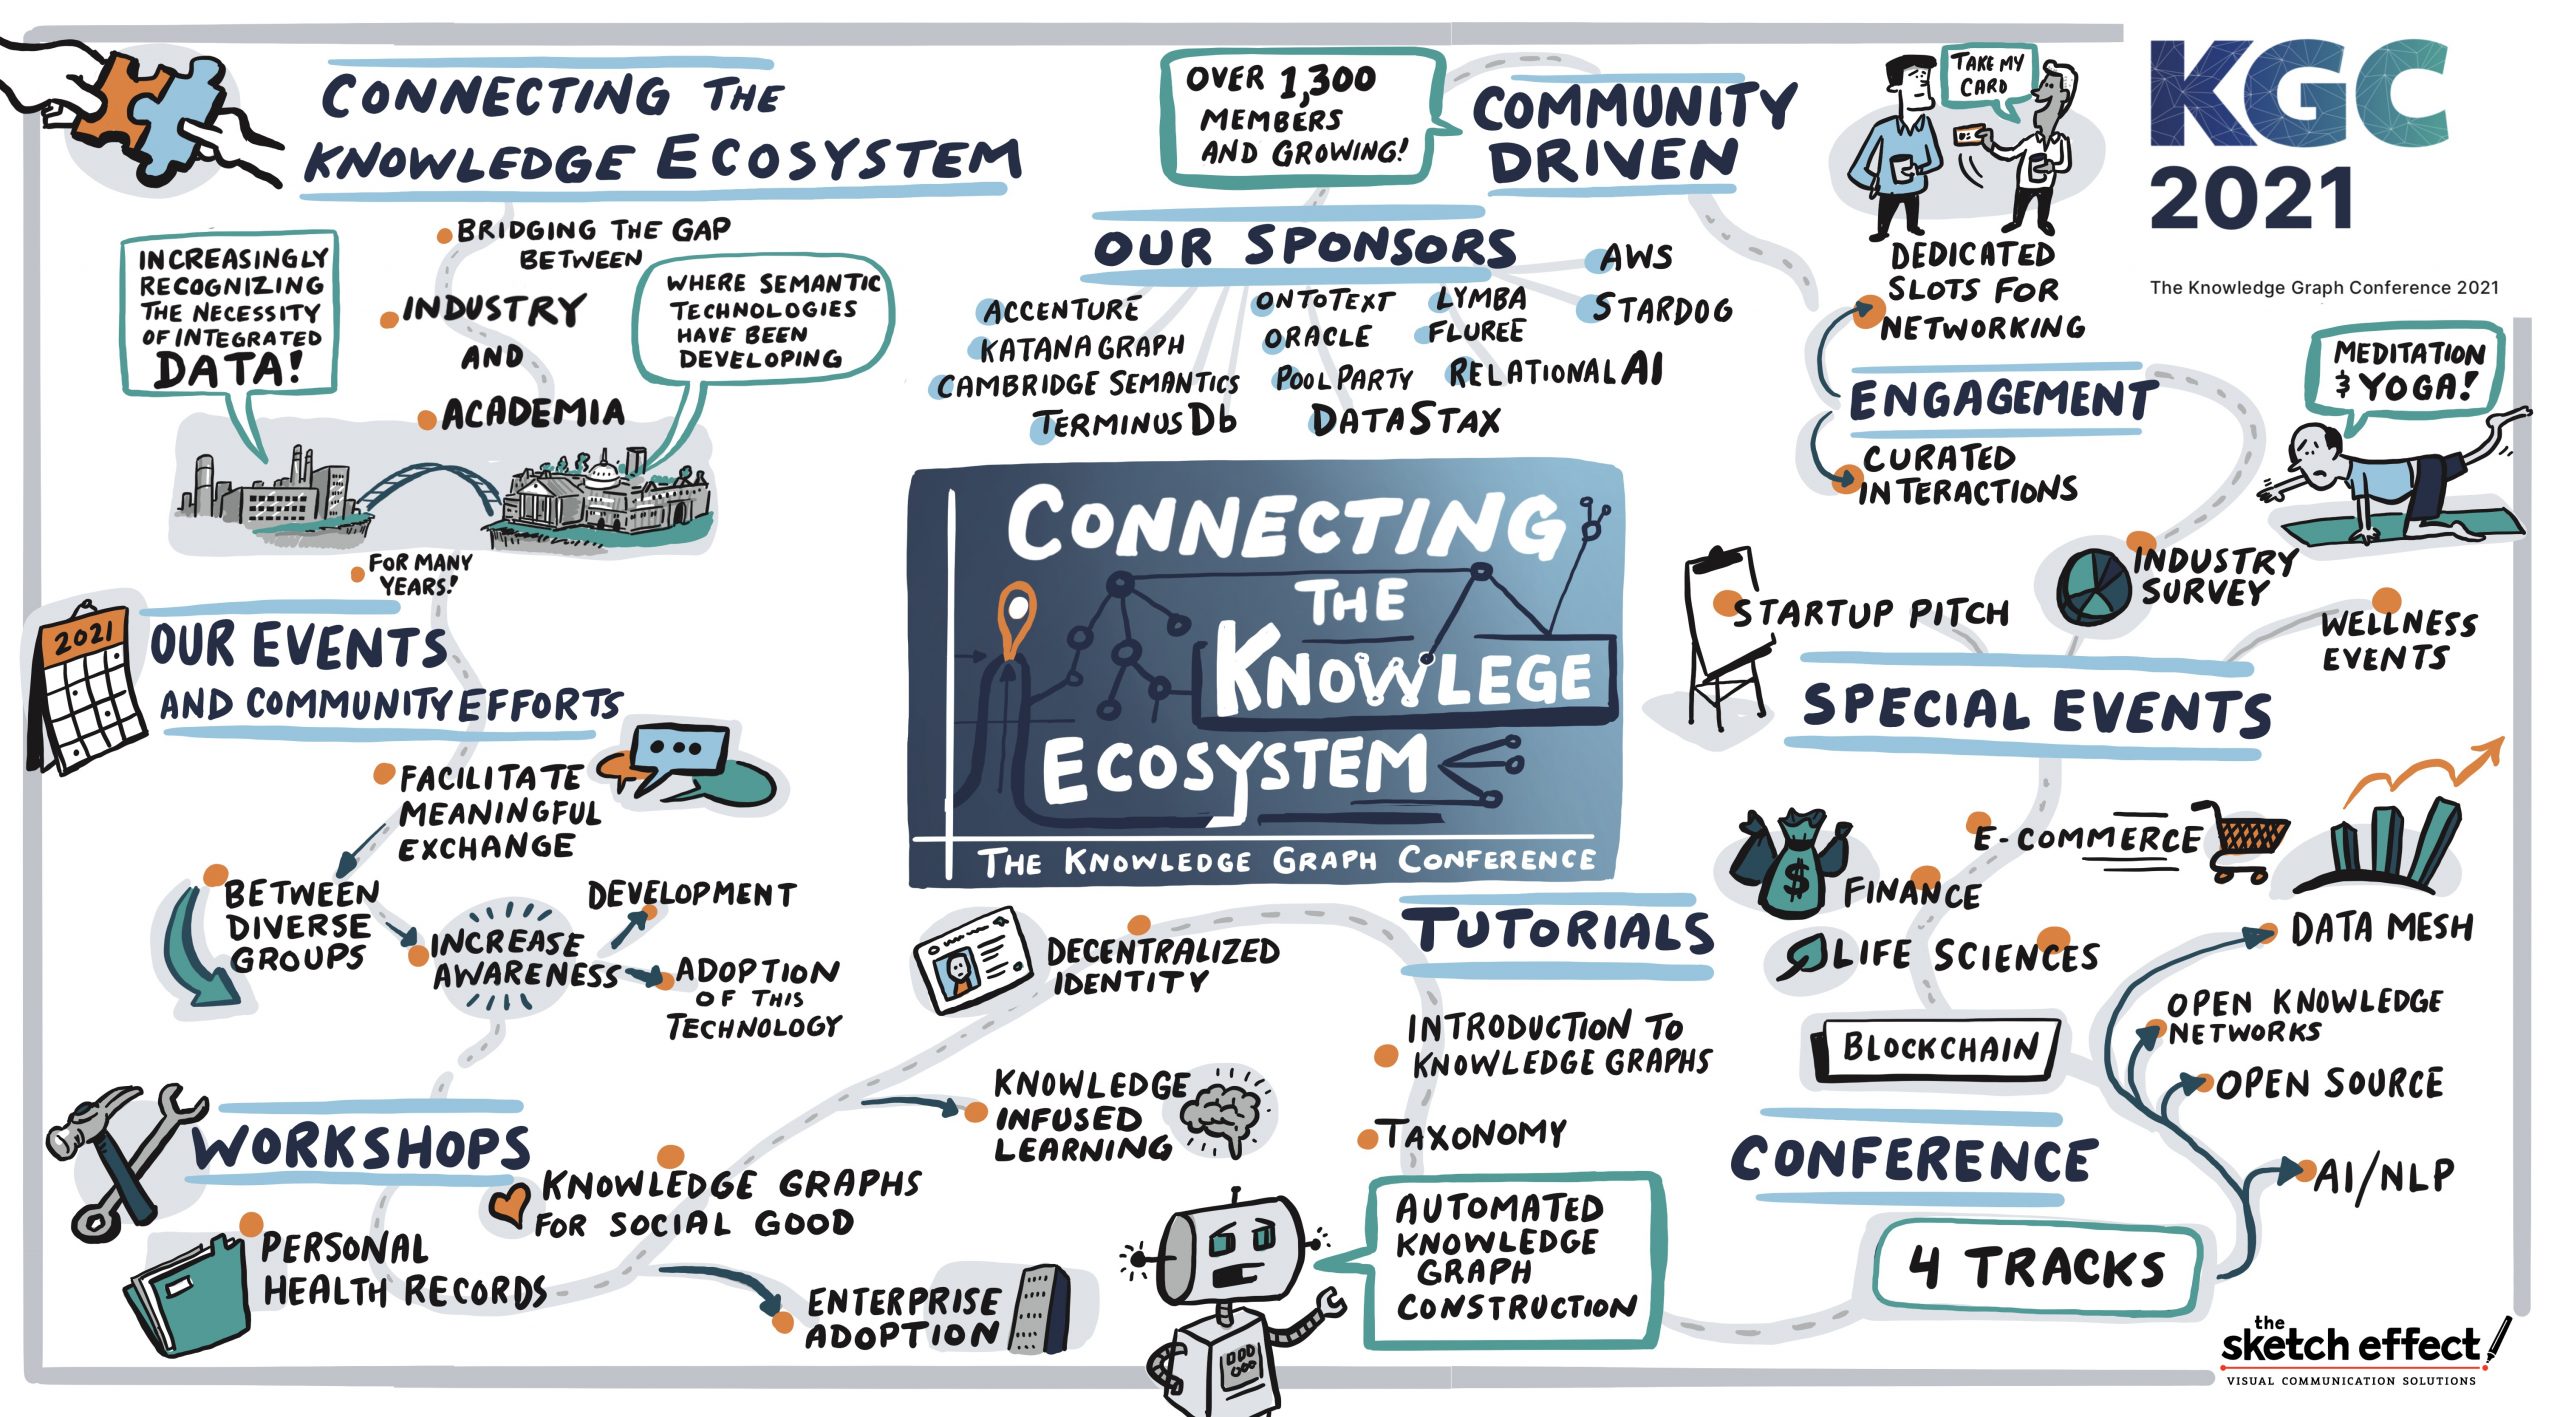 CONNECTING THE
KNOWLEDGE ECOSYSTEM
BRIDGING THE GAP
BETWEEN
INDUSTRY
AND
ACADEMIA
INCREASINGLY
RECOGNIZING
THE NECESSITY
OF INTEGRATED
DATA!
WHERE SEMANTIC
TECHNOLOGIES
HAVE BEEN
DEVELOPING
FOR MANY
YEARS!
2021
OUR EVENTS
AND COMMUNITY EFFORTS
FACILITATE
MEANINGFUL
EXCHANGE
BETWEEN
DIVERSE
GROUPS
INCREASE
AWARENESS
DEVELOPMENT
ADOPTION
OF THIS
TECHNOLOGY
WORKSHOPS
PERSONAL
HEALTH RECORDS
KNOWLEDGE GRAPHS
FOR SOCIAL GOOD
ENTERPRISE
ADOPTION
KNOWLEDGE
INFUSED
LEARNING
DECENTRALIZED
IDENTITY
OVER 1,300
MEMBERS
AND GROWING!
COMMUNITY
DRIVEN
OUR SPONSORS
ACCENTURE
KATANA GRAPH
CAMBRIDGE SEMANTICS
TERMINUS Db
ONTOTEXT
ORACLE
POOLPARTY
DATASTAX
LYMBA
FLUREE
RELATIONALAI
AWS
STARDOG
CONNECTING
THE
KNOWLEGE
ECOSYSTEM
THE KNOWLEDGE GRAPH CONFERENCE
TUTORIALS
INTRODUCTION TO
KNOWLEDGE GRAPHS
TAXONOMY
AUTOMATED
KNOWLEDGE
GRAPH
CONSTRUCTION
TAKE MY
CARD
DEDICATED
SLOTS FOR
NETWORKING
ENGAGEMENT
CURATED
INTERACTIONS
KGC
2021
The Knowledge Graph Conference 2021
MEDITATION
& YOGA!
STARTUP PITCH
INDUSTRY
SURVEY
WELLNESS
EVENTS
SPECIAL EVENTS
E-COMMERCE
$
FINANCE
LIFE SCIENCES
BLOCKCHAIN
CONFERENCE
4 TRACKS
DATA MESH
OPEN KNOWLEDGE
NETWORKS
OPEN SOURCE
AI/NLP
the
sketch effect
VISUAL COMMUNICATION SOLUTIONS